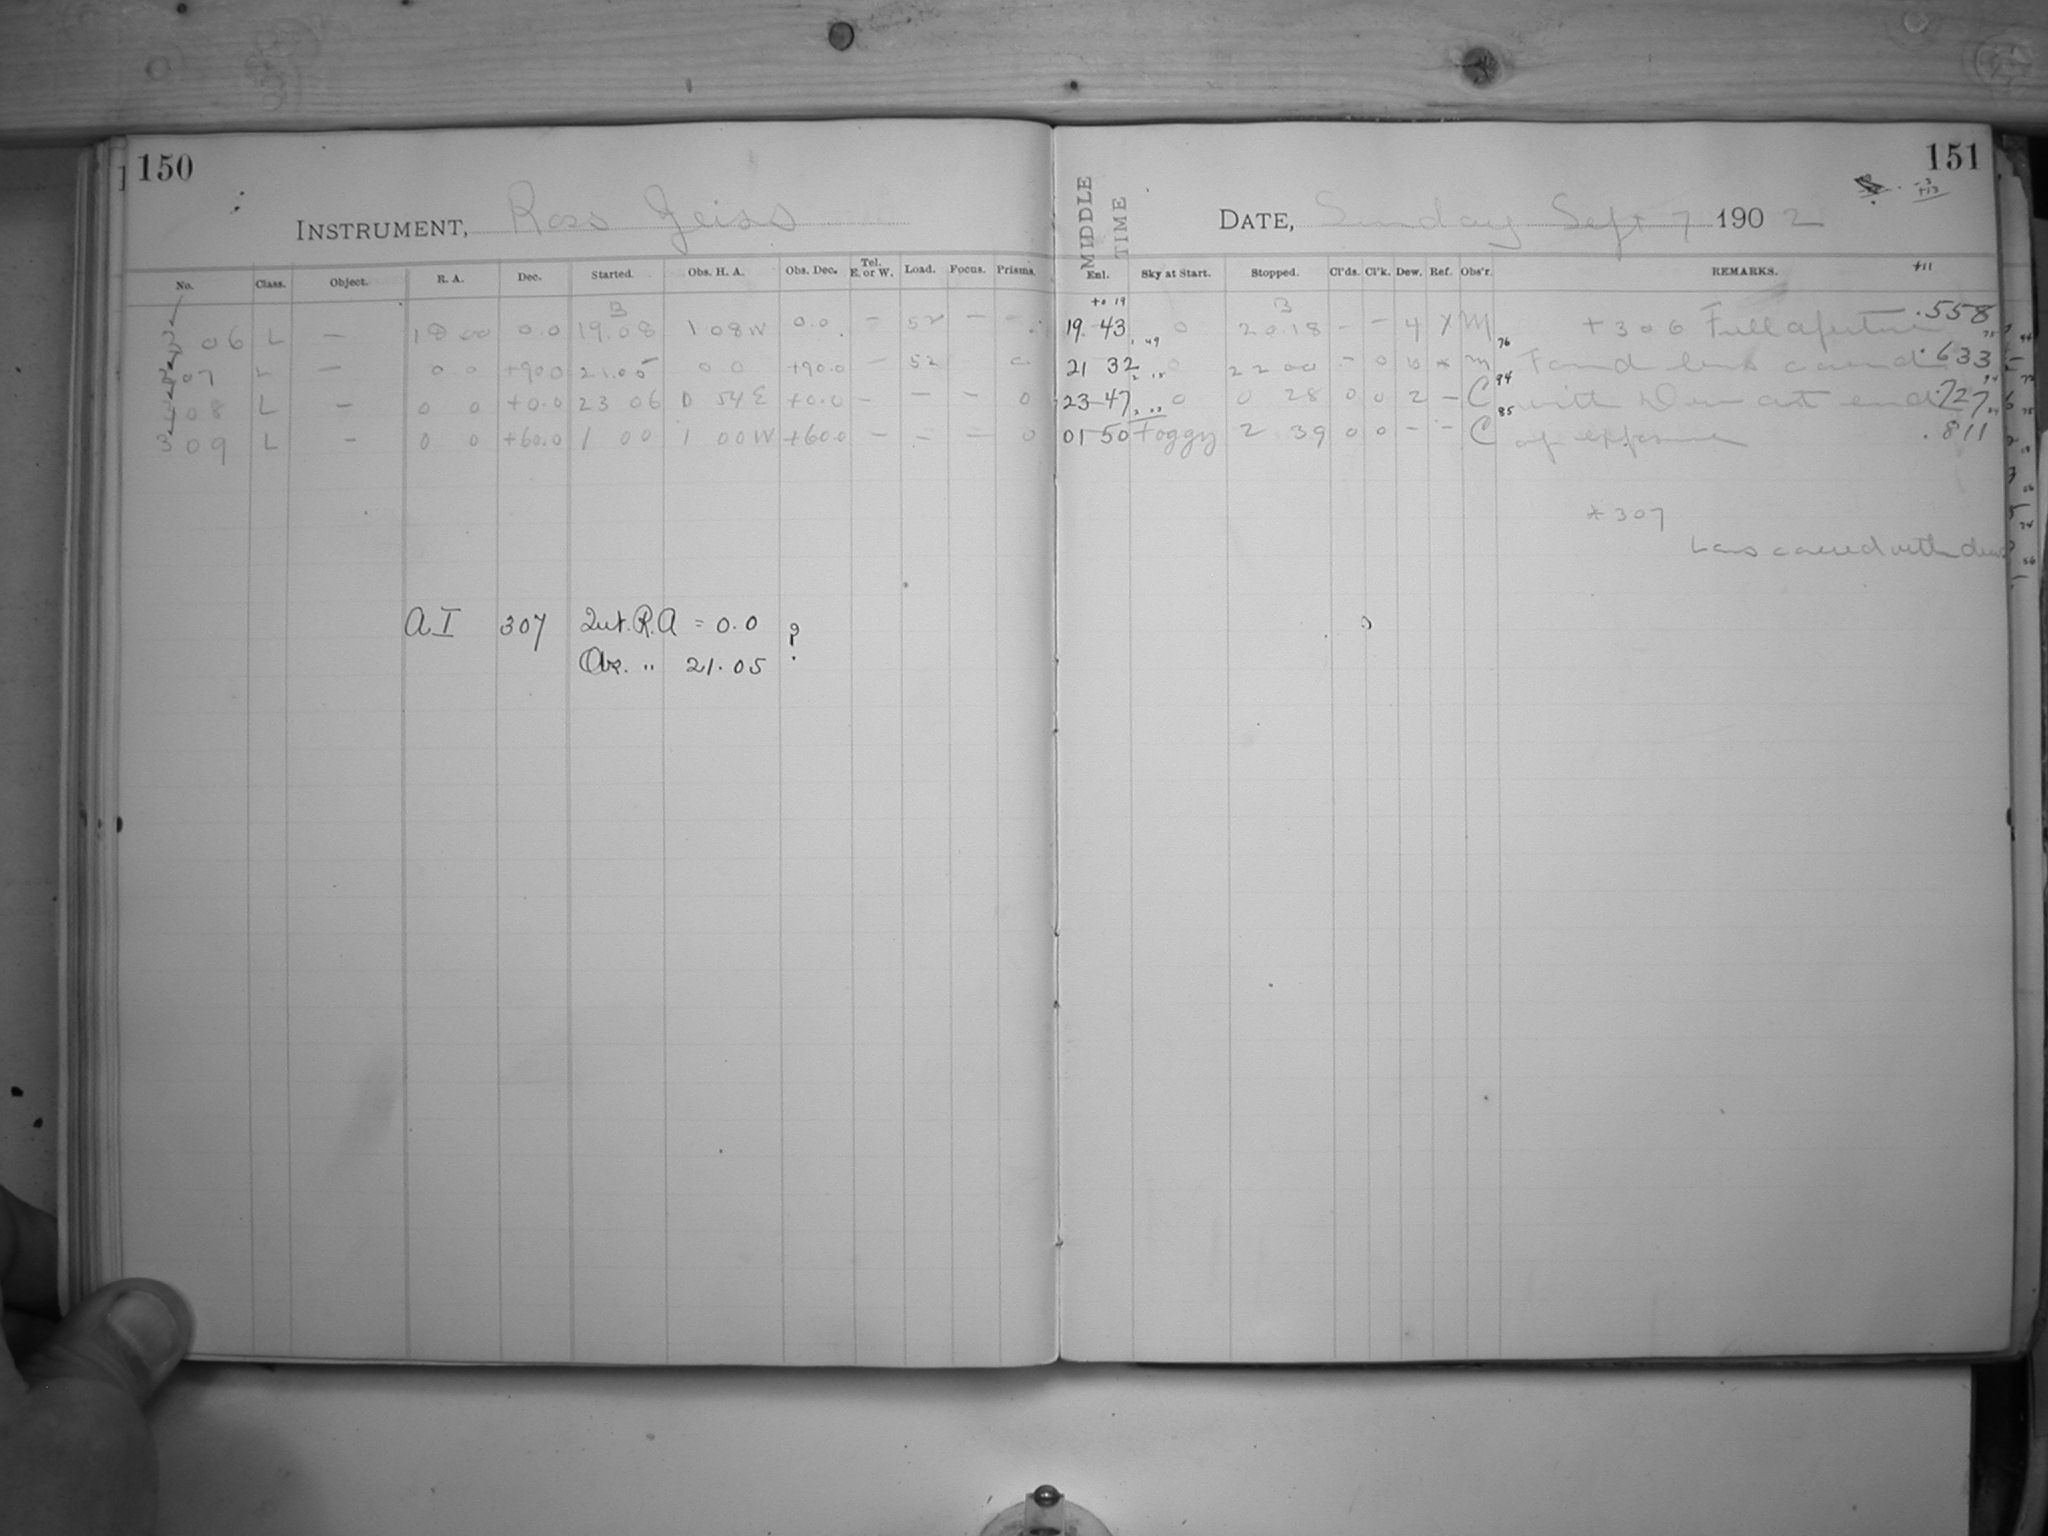 150
INSTRUMENT, Ross Zeiss
No. Class. Object. R. A. Dec. Started. Obs. H. A. Obs. Dec. Tel. E. or W. Load. Focus. Prisms.
B
06 L — 18 00 0.0 19.08 1 08 W 0.0 — 52 — —
07 L — 0 0 +90.0 21.05 0 0 +90.0 — 52 0
08 L — 0 0 +0.0 23 06 0 54 E +0.0 — — — 0
309 L — 0 0 +60.0 1 00 1 00 W +60.0 — — — 0
AI 307 Int. R.A = 0.0 ?
Obs. " 21.05
151
MIDDLE TIME
DATE, Sunday Sept 7 1902
-3
+13
Enl. Sky at Start. Stopped. Cl'ds. Cl'k. Dew. Ref. Obs'r. REMARKS. +11
+0 19 B
19 43 0 20.18 — — 4 X M + 306 Full aperture .558
21 32 0 22 00 — 0 10 * M Found lens covered .633
23 47 0 0 28 0 0 2 — C with Dew at end .727
01 50 Foggy 2 39 0 0 — — C of exposure .811
* 307
Lens covered with dew